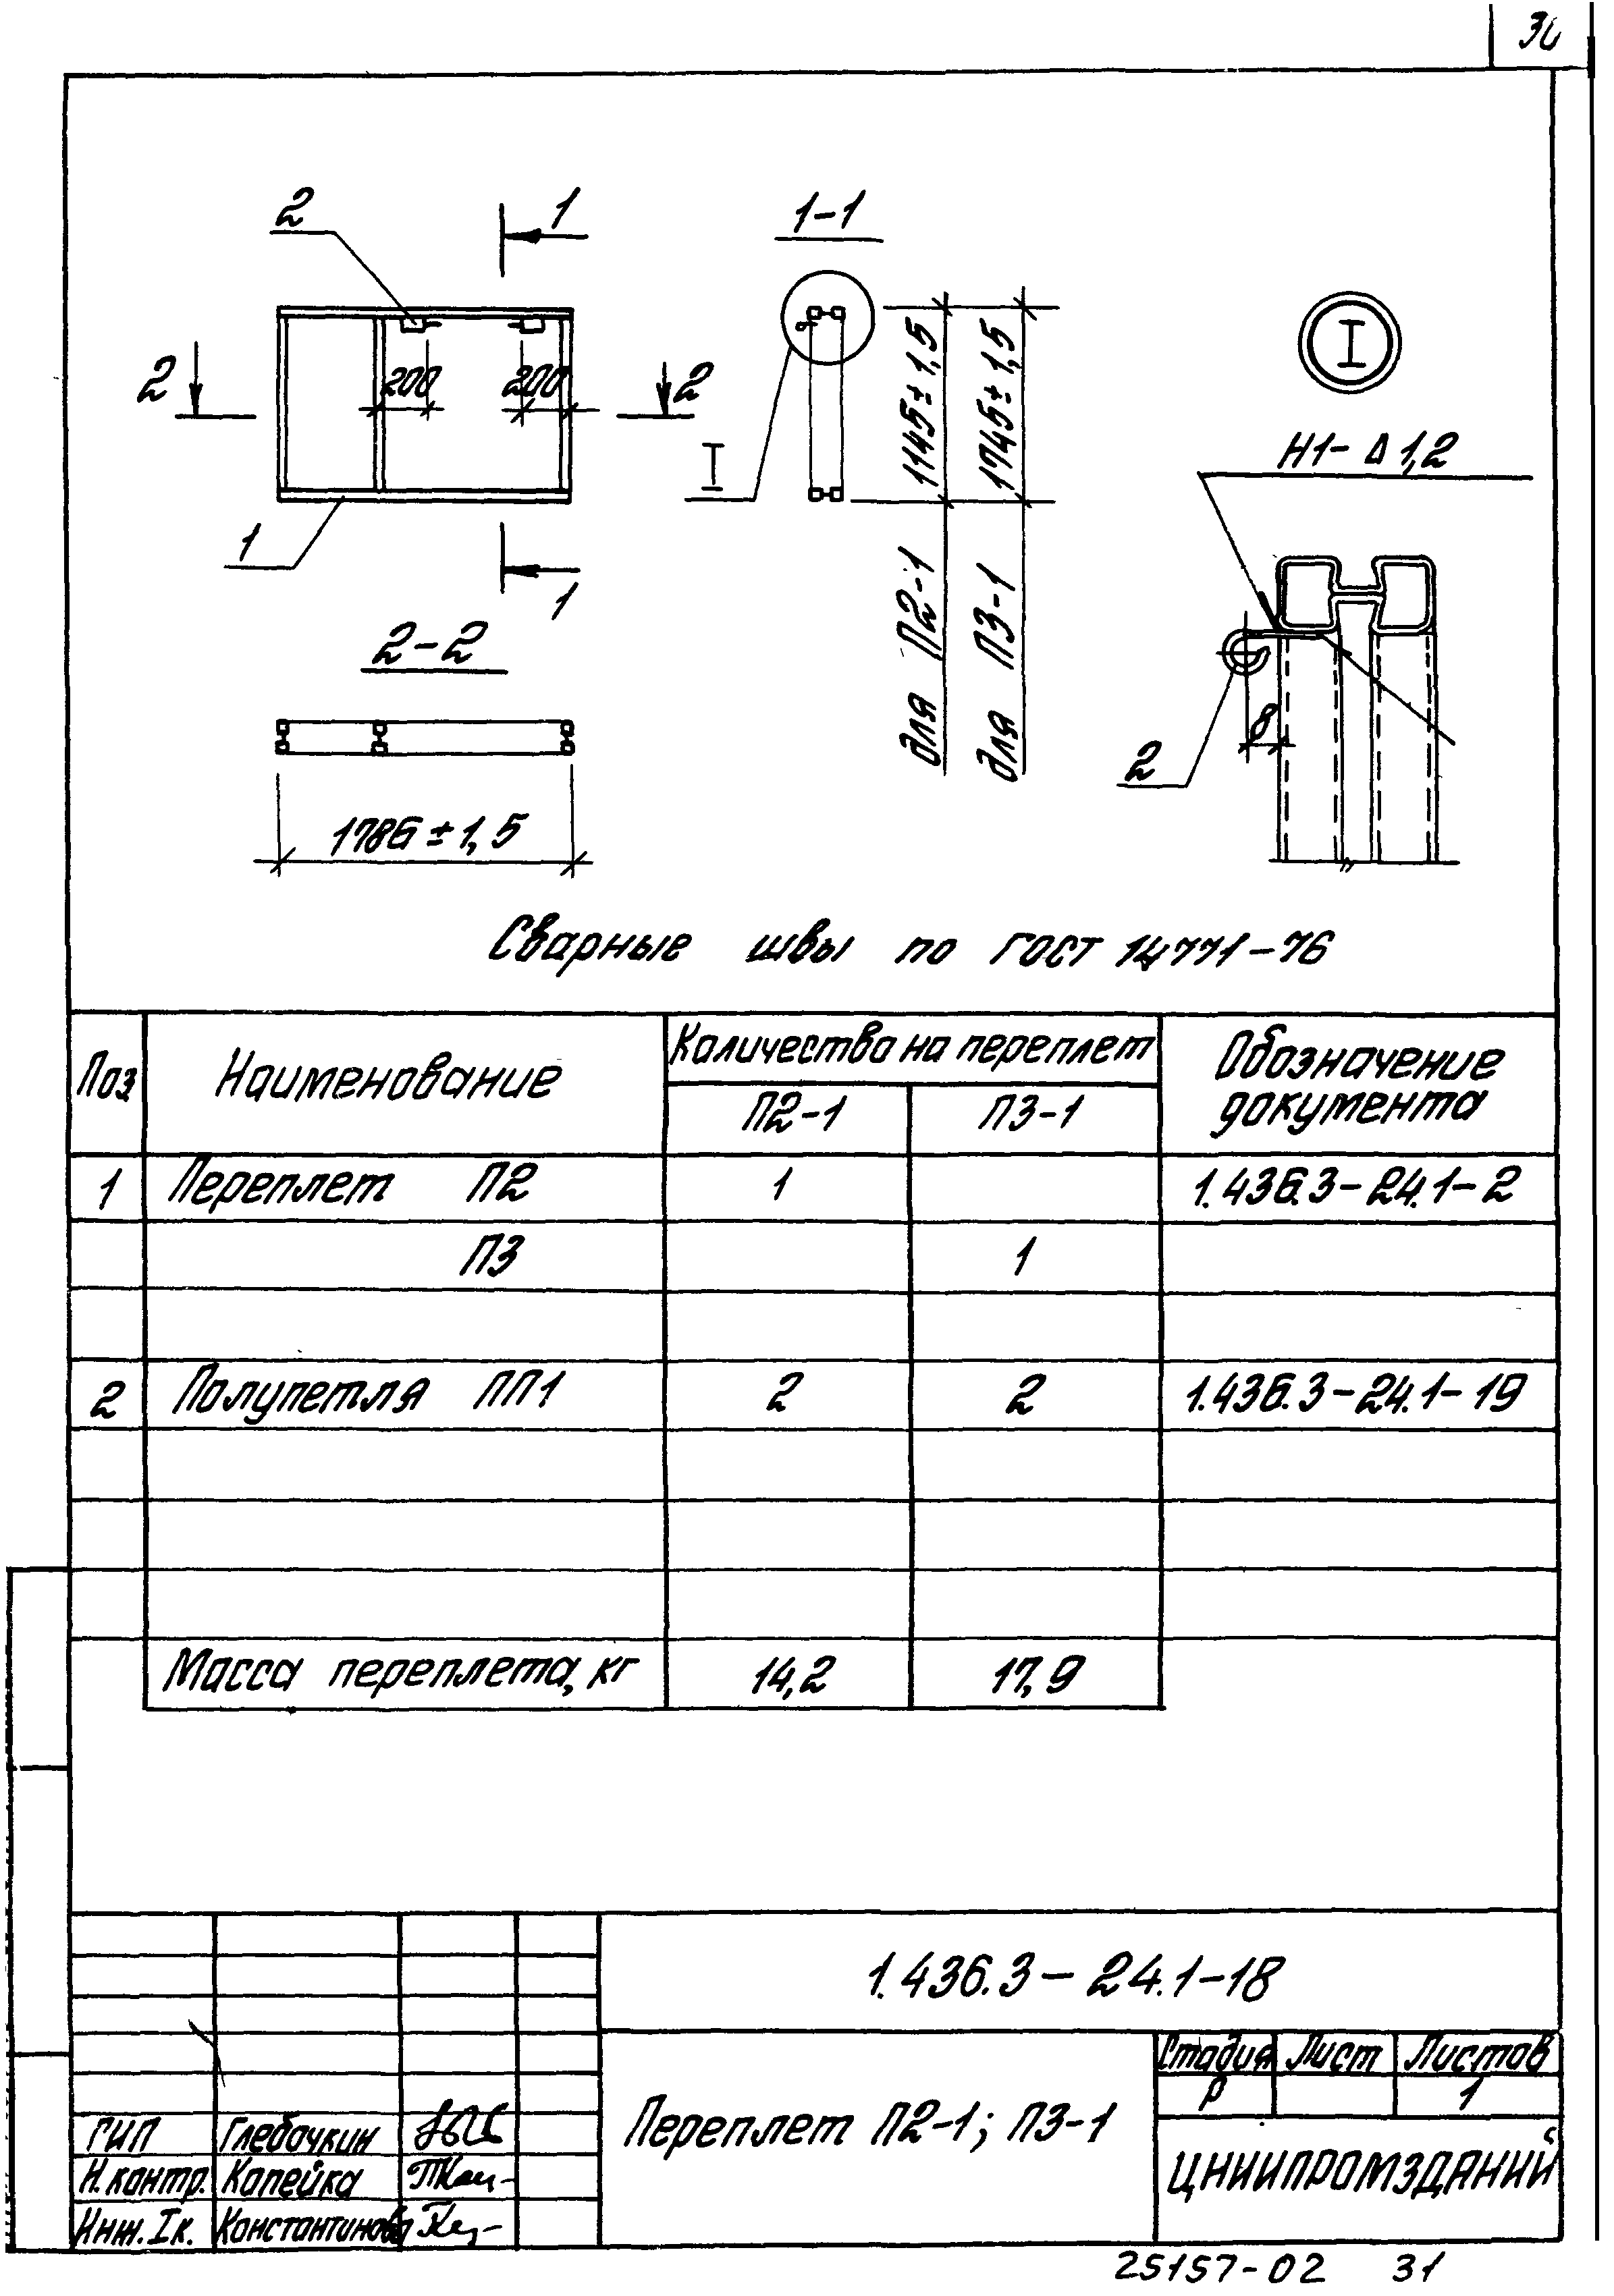 30
2
1
1-1
I
2
200
200
2
I
1145±1,5
1745±1,5
Н1-Δ1,2
1
1
для П2-1
для П3-1
2-2
8
2
1786±1,5
Сварные швы по ГОСТ 14771-76
Поз Наименование Количество на переплет Обозначение документа
П2-1 П3-1
1 Переплет П2 1 1.436.3-24.1-2
П3 1
2 Полупетля ПП1 2 2 1.436.3-24.1-19
Масса переплета, кг 14,2 17,9
1.436.3-24.1-18
Стадия Лист Листов
Р 1
Переплет П2-1; П3-1
ГИП Глебочкин
Н.контр. Капейка
Инж.Iк. Константинова
ЦНИИПРОМЗДАНИЙ
25157-02 31